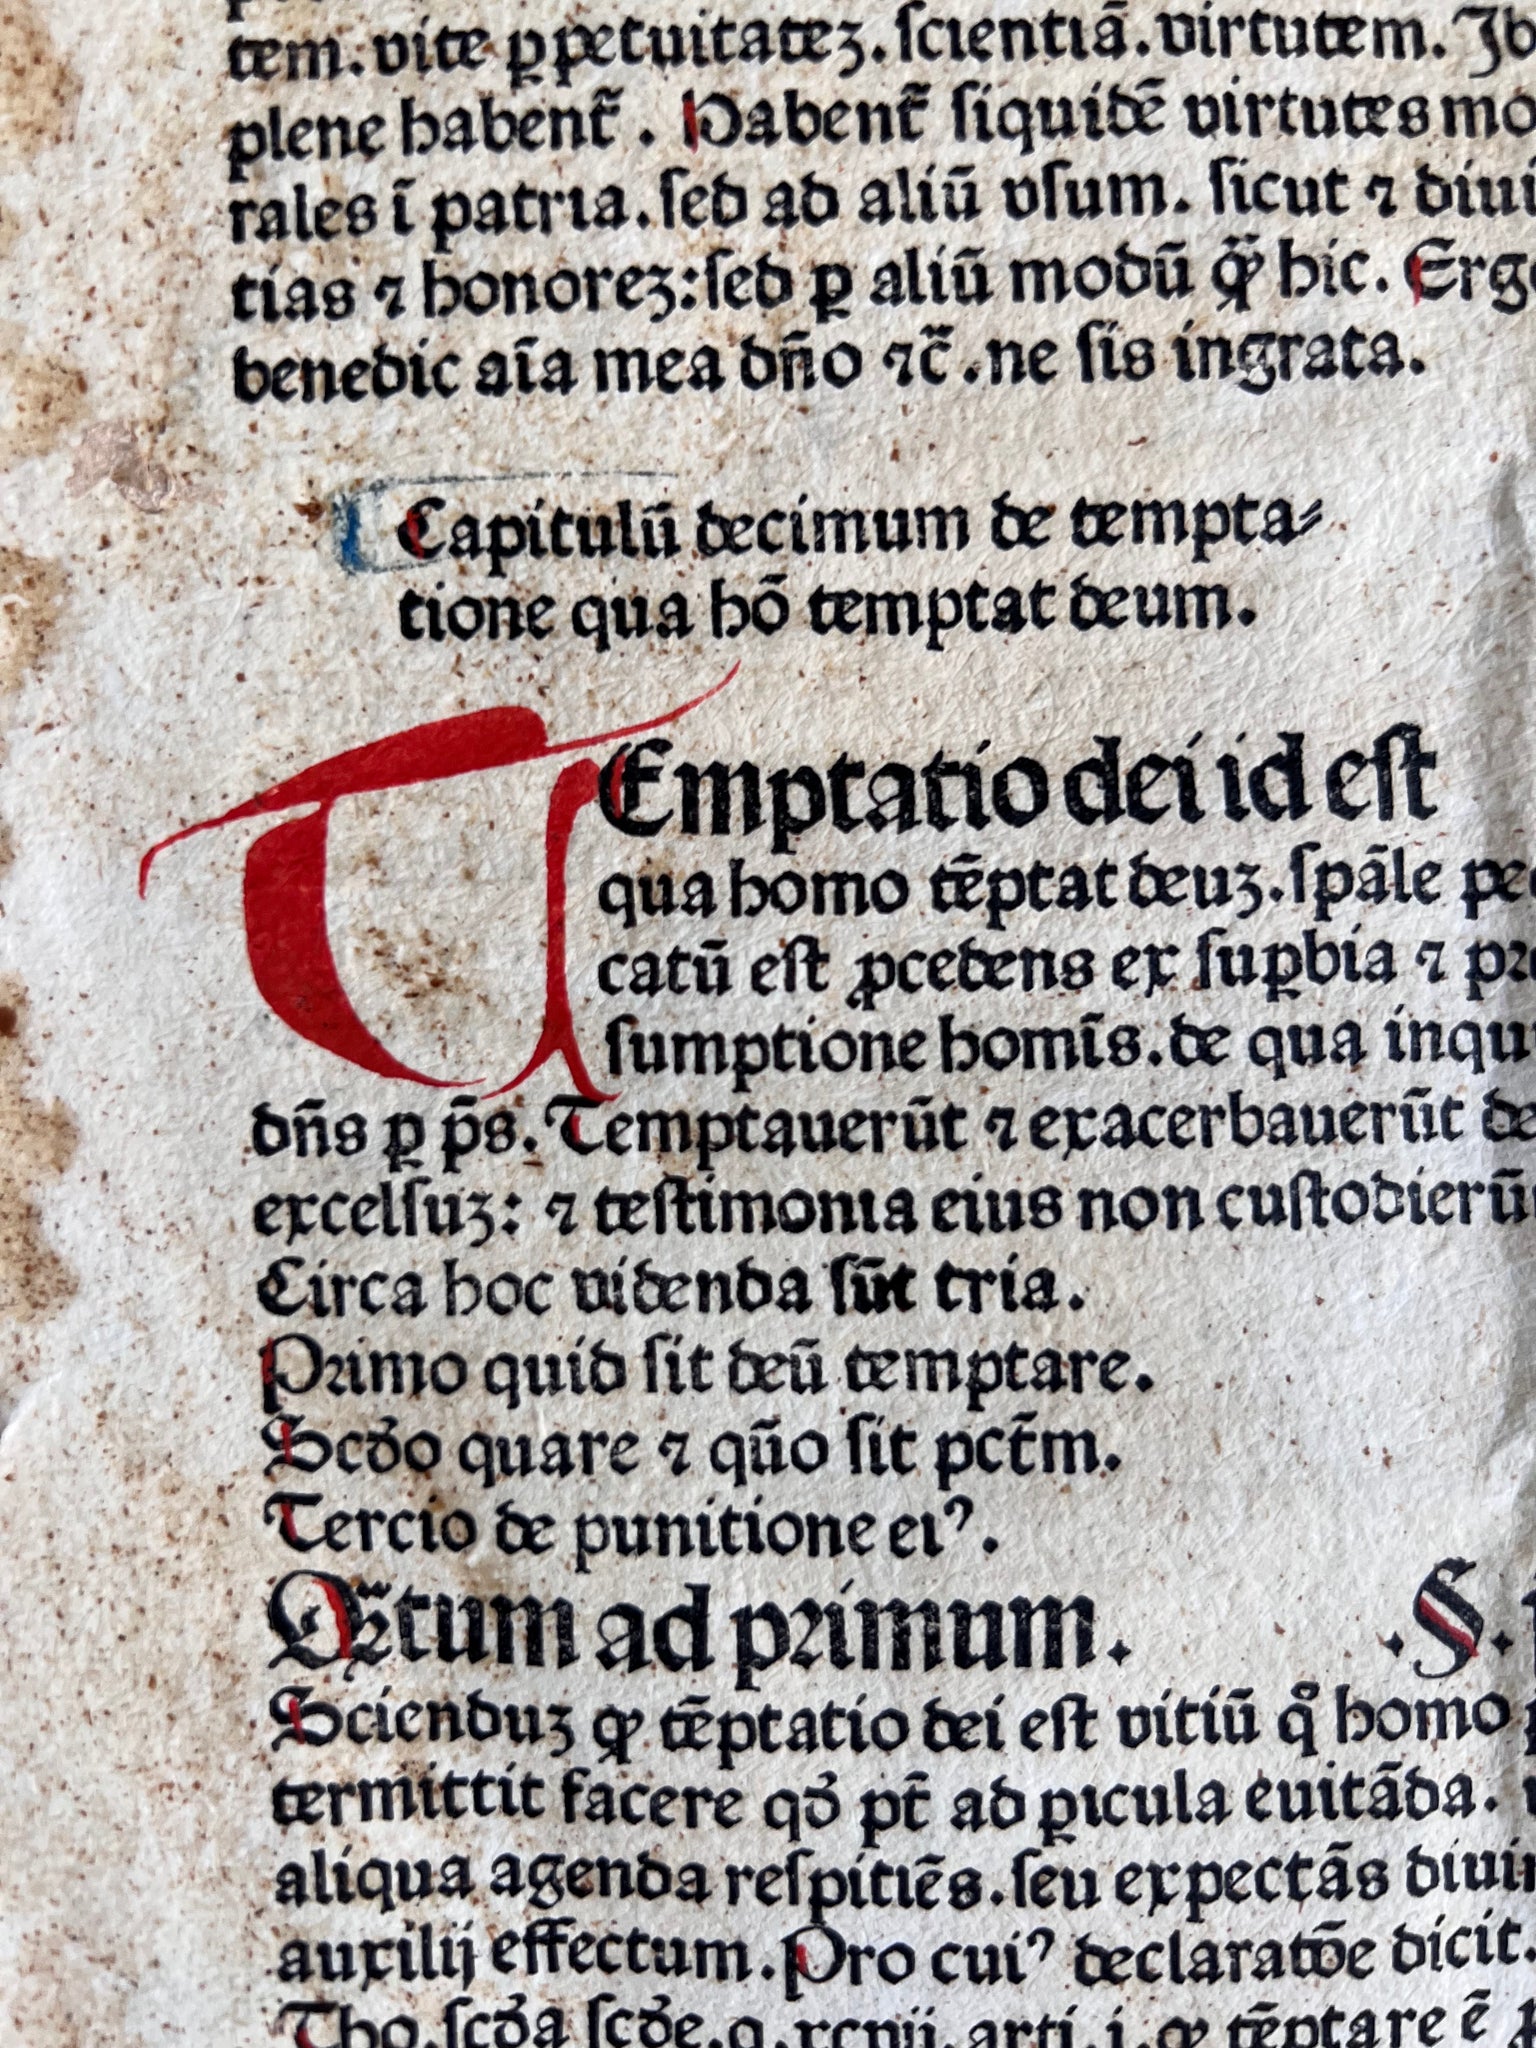 tem. vite ꝑpetuitateꝫ. ſcientiā. virtutem. Ib
plene habent̃. Habent̃ ſiquidē virtutes mo
rales ī patria. ſed ad aliū vſum. ſicut ⁊ diui
tias ⁊ honoreꝫ: ſed ꝑ aliū modū ꝙ̃ hic. Erg
benedic aīa mea dño ⁊c̃. ne ſis ingrata.
Capitulū decimum de tempta⸗
tione qua hō temptat deum.
TEmptatio dei id eſt
qua homo tēptat deuꝫ. ſpāle pec
catū eſt ꝓcedens ex ſuꝑbia ⁊ pꝛ
ſumptione homīs. de qua inqu
dñs ꝑ p̄s. Temptauerūt ⁊ exacerbauerūt de
excelſuꝫ: ⁊ teſtimonia eius non cuſtodierū
Circa hoc videnda ſūt tria.
Pꝛimo quid ſit deū temptare.
Scd̓o quare ⁊ qūo ſit pct̄m.
Tercio de punitione eiꝰ.
Qꝛ̄tum ad pꝛimum. .§.
Scienduꝫ ꝙ tēptatio dei eſt vitiū qͦ homo
termittit facere qd̓ pt̄ ad ꝑicula euitāda.
aliqua agenda reſpitiēs. ſeu expectās diui
auxilij effectum. Pro cuiꝰ declaratōe dicit.
Tho. ſcd̓a ſcd̓e. q. xcvij. arti. i. ꝙ tēptare ē